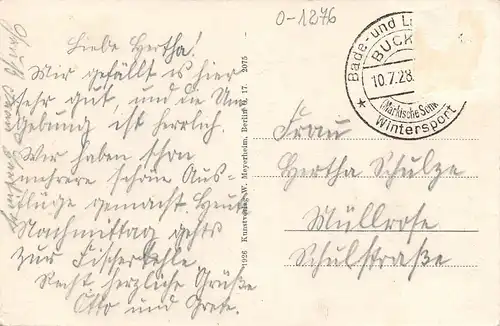 0-1276
Liebe Hertha!
Mir gefällt es hier
sehr gut, und die Um
gebung ist herrlich.
Wir haben schon
mehrere schöne Aus-
flüge gemacht. Heut
Nachmittag gehts
zur Fischerkehle
Recht herzliche Grüße
Otto und Grete.
1926 Kunstverlag W. Meyerheim, Berlin O. 17. 2075
Bade-und L
BUCK
10.7.28.
(Märkische Schw
Wintersport
Frau
Hertha Schulze
Müllrose
Schulstraße